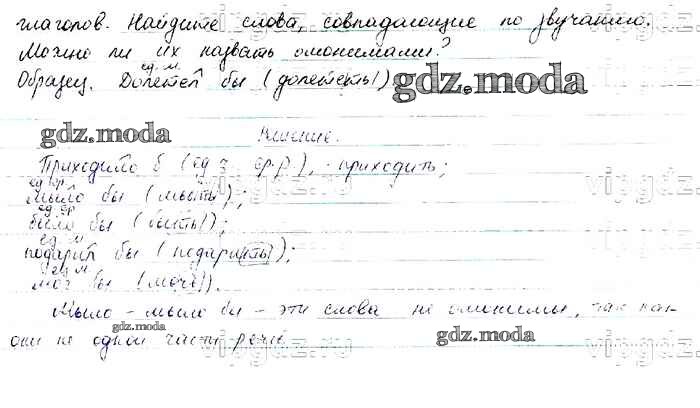 глаголов. Найдите слова, совпадающие по звучанию.
Можно ли их назвать омонимами?
ед. м.
Образец. Долетел бы (долететь)
gdz.moda
gdz.moda
Решение.
vipgdz.ru
Приходило б (ед ср.р), приходить;
ед ср.
мыло бы (мыть);
vipgdz.ru
ед ср
было бы (быть);
ед. м
подарил бы (подарить);
vipgdz.ru
ед м
мог бы (мочь).
Мыло - мыло бы - эти слова не омонимы, так как
gdz.moda
gdz.moda
они не одной части речи.
vipgdz.ru
vipgdz.ru